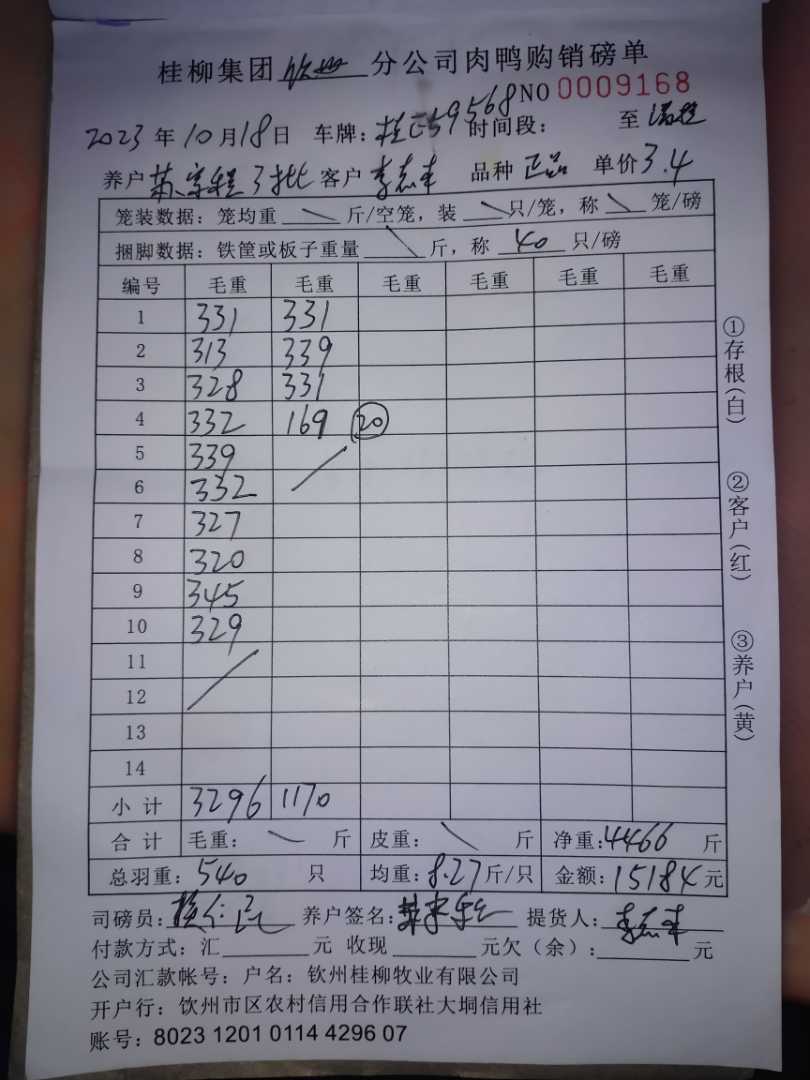 桂柳集团 钦州 分公司肉鸭购销磅单
NO 0009168
2023 年 10 月 18 日 车牌: 桂 59568 时间段: 至
养户 3批 客户 李志丰 品种 正品 单价 3.4
笼装数据: 笼均重 斤/空笼, 装 只/笼, 称 笼/磅
捆脚数据: 铁筐或板子重量 斤, 称 40 只/磅
编号 毛重 毛重 毛重 毛重 毛重 毛重
1 331 331
2 313 339
3 328 331
4 332 169 20
5 339
6 332
7 327
8 320
9 345
10 329
11
12
13
14
小 计 3296 1170
合 计 毛重: 斤 皮重: 斤 净重: 4466 斤
总羽重: 540 只 均重: 8.27 斤/只 金额: 15184 元
司磅员: 养户签名: 提货人: 李志丰
付款方式: 汇 元 收现 元欠(余): 元
公司汇款帐号: 户名: 钦州桂柳牧业有限公司
开户行: 钦州市区农村信用合作联社大垌信用社
账号: 8023 1201 0114 4296 07
①存根(白)
②客户(红)
③养户(黄)